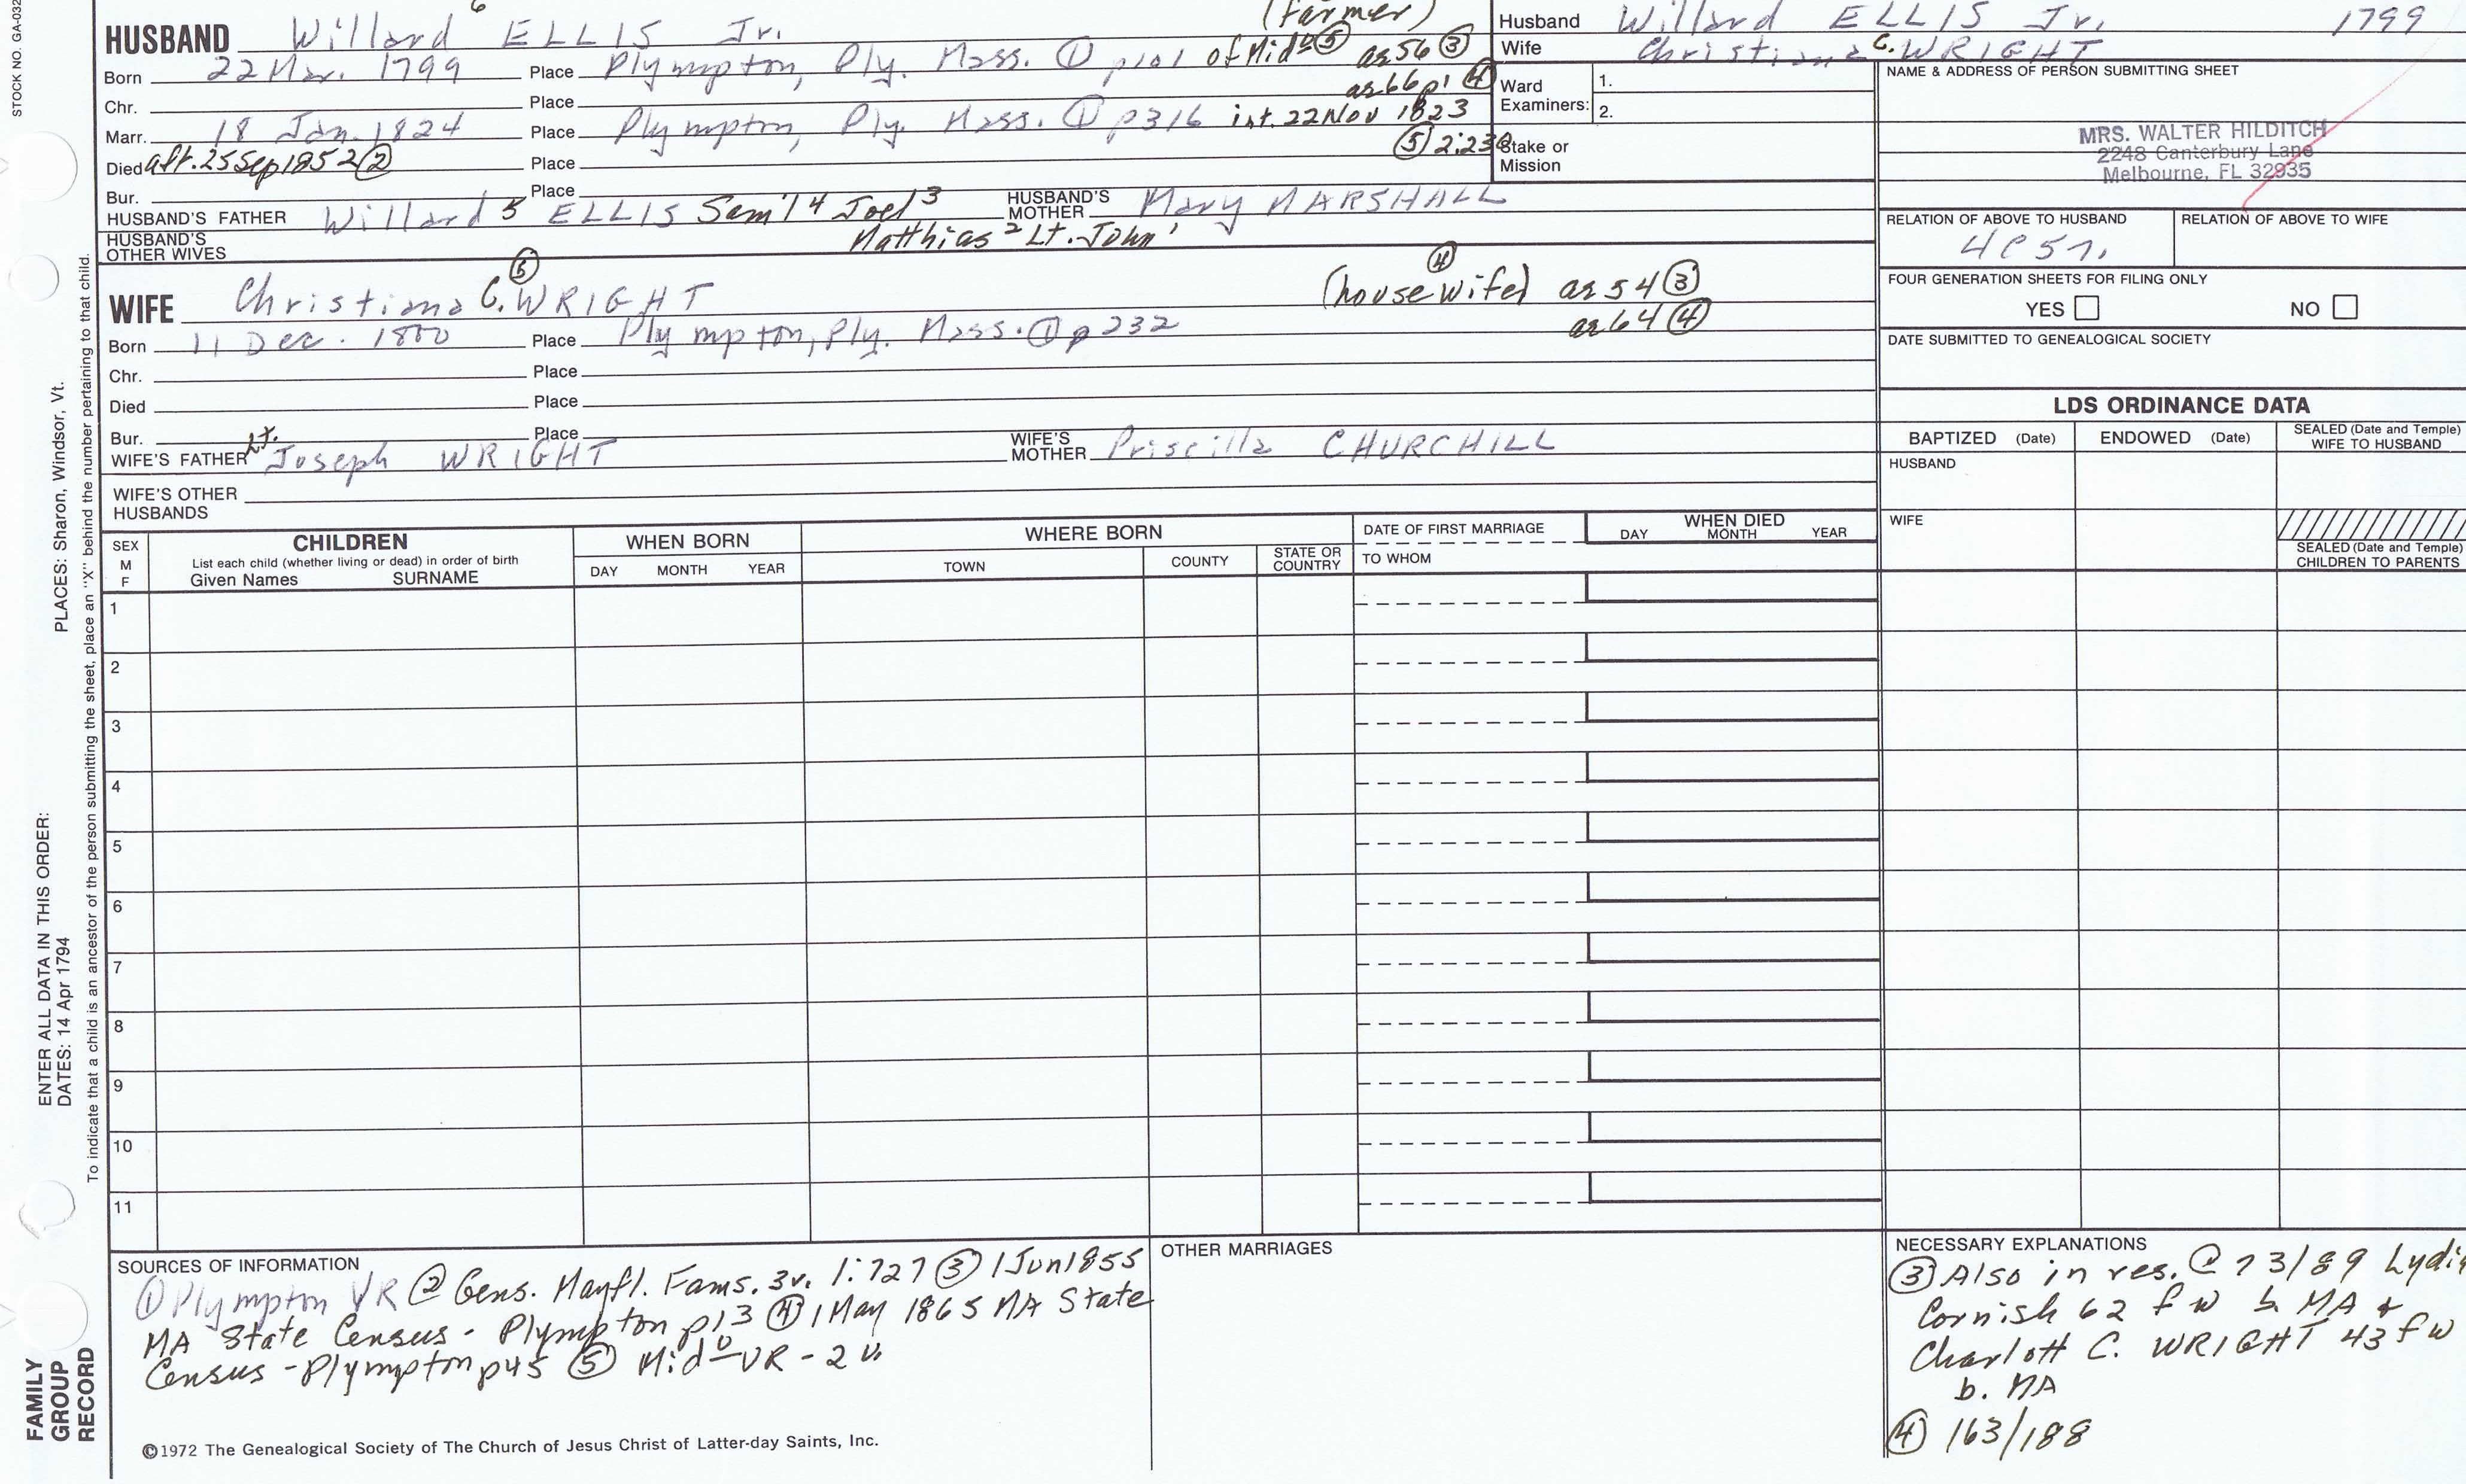 STOCK NO. GA-032
6
HUSBAND Willard ELLIS Jr. (Farmer)
Born 22 Mar. 1799 Place Plympton, Ply. Mass. ① p101 of Mid⁰ ⑤ ae 56 ③
ae 66 p1 ④
Chr. Place
Marr. 18 Jan. 1824 Place Plympton, Ply. Mass. ① p316 int. 22 Nov 1823
⑤ 2:238
Died aft. 25 Sep 1852 ② Place
Bur. Place
HUSBAND'S FATHER Willard 5 ELLIS Sam'l 4 Joel 3 HUSBAND'S MOTHER Mary MARSHALL
Matthias 2 Lt. John 1
HUSBAND'S OTHER WIVES
WIFE Christiana C. ⑤ WRIGHT (housewife) ④ ae 54 ③
ae 64 ④
Born 11 Dec. 1800 Place Plympton, Ply. Mass. ① p232
Chr. Place
Died Place
Bur. Place
WIFE'S FATHER Lt. Joseph WRIGHT WIFE'S MOTHER Priscilla CHURCHILL
WIFE'S OTHER HUSBANDS
Husband Willard ELLIS Jr. 1799
Wife Christiana C. WRIGHT
Ward Examiners: 1.
2.
Stake or Mission
NAME & ADDRESS OF PERSON SUBMITTING SHEET
MRS. WALTER HILDITCH
2248 Canterbury Lane
Melbourne, FL 32935
RELATION OF ABOVE TO HUSBAND RELATION OF ABOVE TO WIFE
4C5r.
FOUR GENERATION SHEETS FOR FILING ONLY
YES NO
DATE SUBMITTED TO GENEALOGICAL SOCIETY
LDS ORDINANCE DATA
BAPTIZED (Date) ENDOWED (Date) SEALED (Date and Temple) WIFE TO HUSBAND
HUSBAND
WIFE
SEALED (Date and Temple) CHILDREN TO PARENTS
SEX M F
CHILDREN
List each child (whether living or dead) in order of birth
Given Names SURNAME
WHEN BORN
DAY MONTH YEAR
WHERE BORN
TOWN COUNTY STATE OR COUNTRY
DATE OF FIRST MARRIAGE
TO WHOM
WHEN DIED
DAY MONTH YEAR
1
2
3
4
5
6
7
8
9
10
11
SOURCES OF INFORMATION
① Plympton VR ② Gens. Mayfl. Fams. 3v. 1:727 ③ 1 Jun 1855
MA State Census - Plympton p13 ④ 1 May 1865 MA State
Census - Plympton p45 ⑤ Mid⁰ VR - 2 v.
OTHER MARRIAGES
NECESSARY EXPLANATIONS
③ Also in res. @ 73/89 Lydia
Cornish 62 f w b. MA &
Charlott C. WRIGHT 43 f w
b. MA
④ 163/188
©1972 The Genealogical Society of The Church of Jesus Christ of Latter-day Saints, Inc.
PLACES: Sharon, Windsor, Vt.
ENTER ALL DATA IN THIS ORDER:
DATES: 14 Apr 1794
To indicate that a child is an ancestor of the person submitting the sheet, place an "X" behind the number pertaining to that child.
FAMILY
GROUP
RECORD